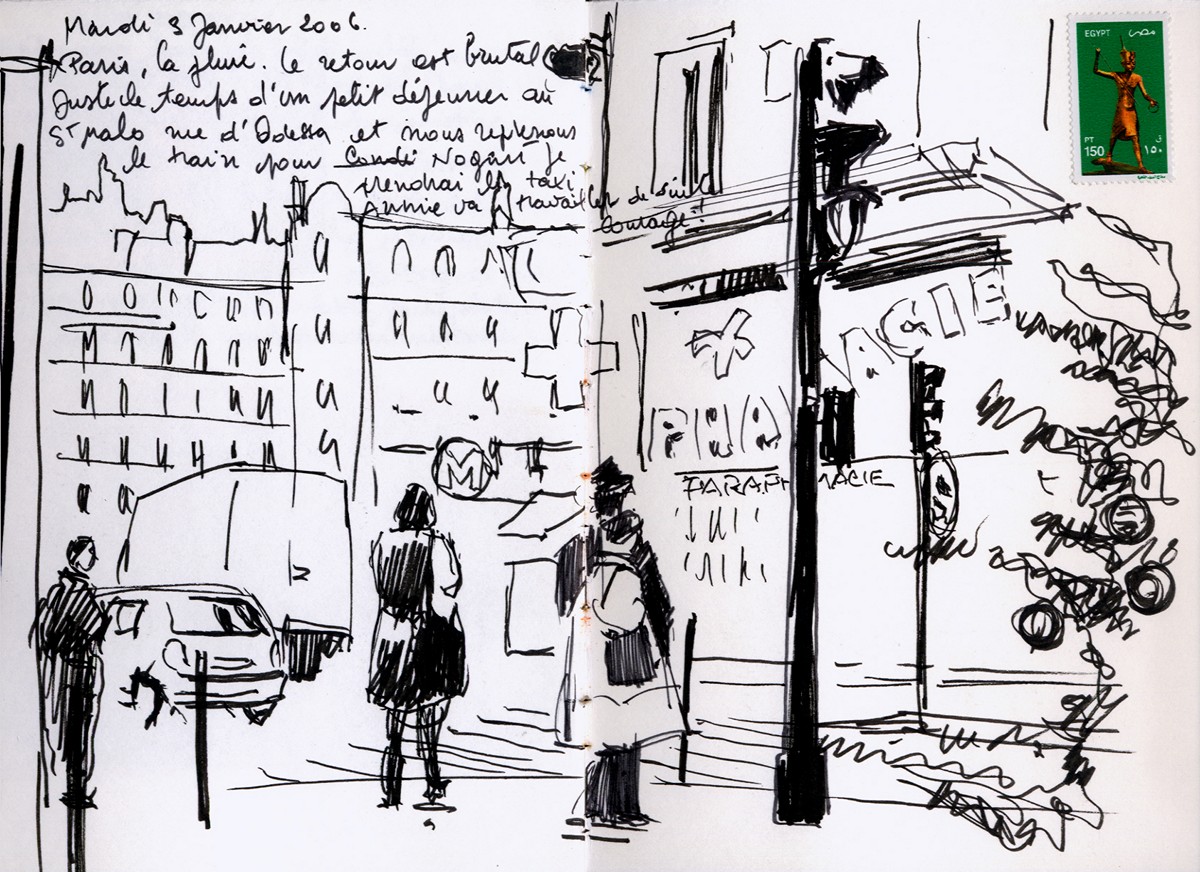 Mardi 3 Janvier 2006.
Paris, la pluie. Le retour est brutal
Juste le temps d'un petit déjeuner au
St Malo rue d'Odessa et nous reprenons
le train pour Condé Nogent Je
prendrai le taxi
Annie va travailler de suite
Courage!!
EGYPT مصر
PT 150
ق ١٥٠
M
PHA MACIE
PARAPH MACIE